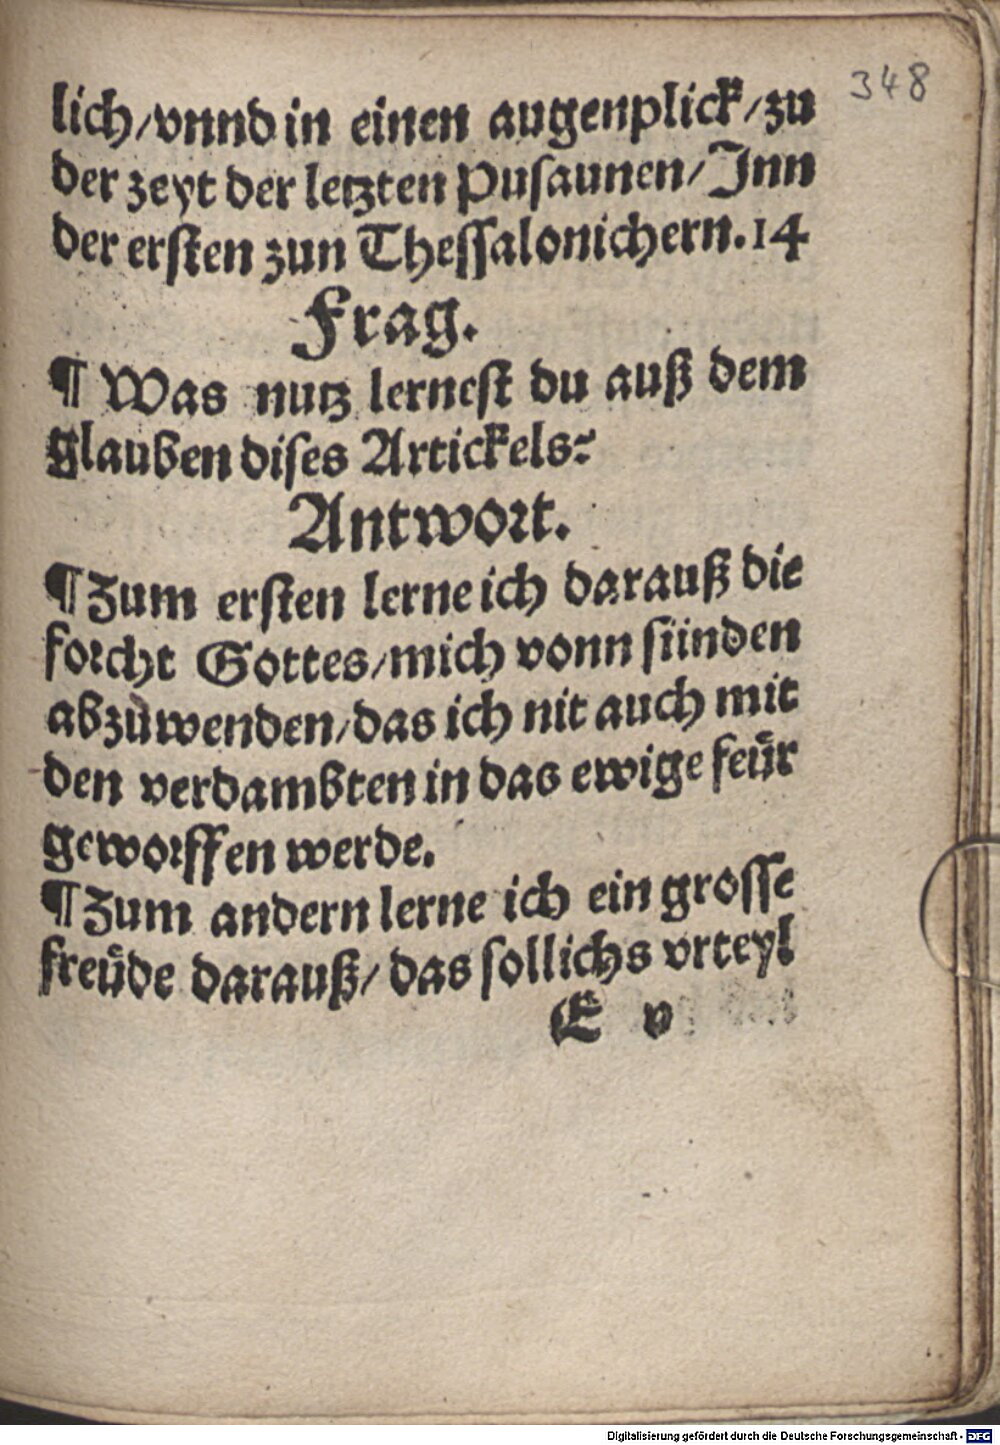 348
lich/vnnd in einen augenplick/zu
der zeyt der letzten Pusaunen/Inn
der ersten zun Thessalonichern.14
Frag.
¶ Was nutz lernest du auß dem
glauben dises Artickels?
Antwort.
¶ Zum ersten lerne ich darauß die
forcht Gottes/mich vonn sünden
abzůwenden/das ich nit auch mit
den verdambten in das ewige feür
geworffen werde.
¶ Zum andern lerne ich ein grosse
freüde darauß/das sollichs vrteyl
E v
Digitalisierung gefördert durch die Deutsche Forschungsgemeinschaft - DFG